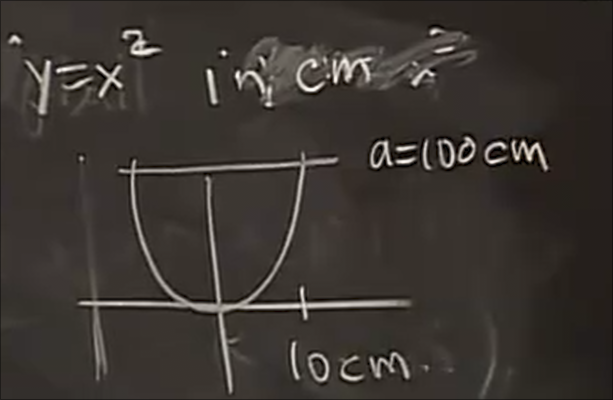 y=x² in cm
a=100cm
10cm.